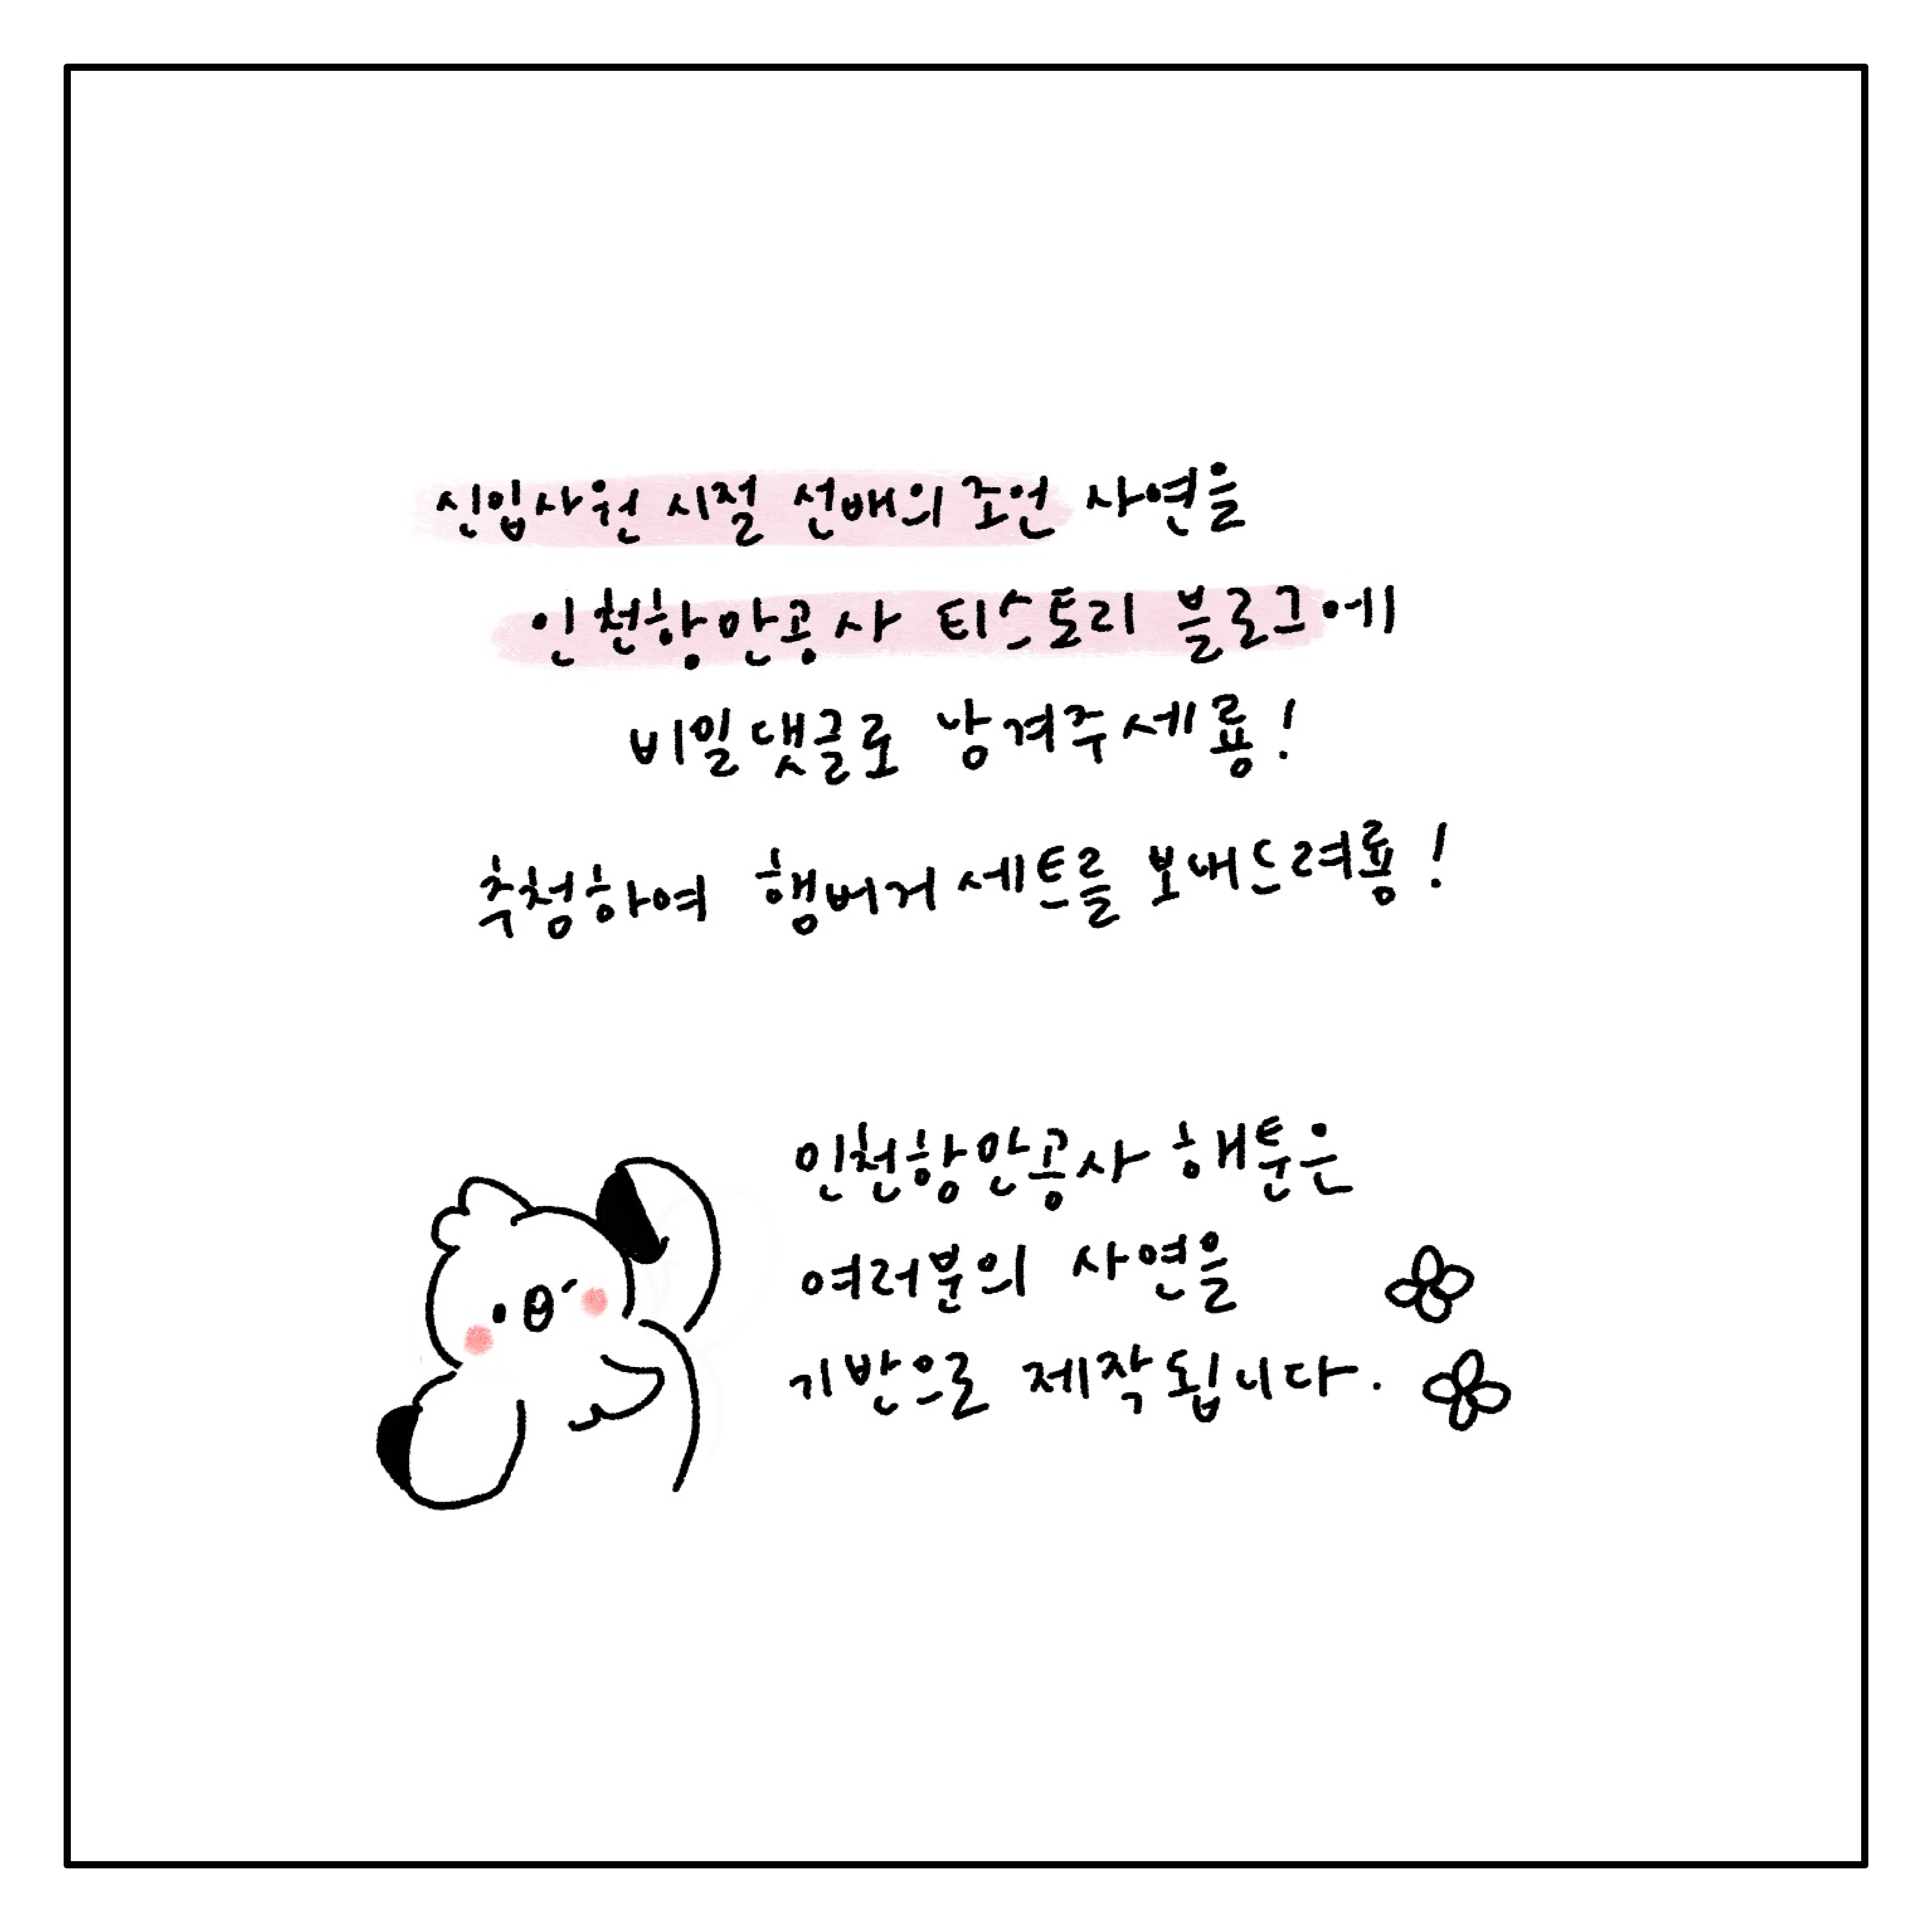 신입사원 시절 선배의 조언 사연을
인천항만공사 티스토리 블로그에
비밀댓글로 남겨주세룡!
추첨하여 햄버거세트를 보내드려룡!
인천항만공사 해툰은
여러분의 사연을
기반으로 제작됩니다.